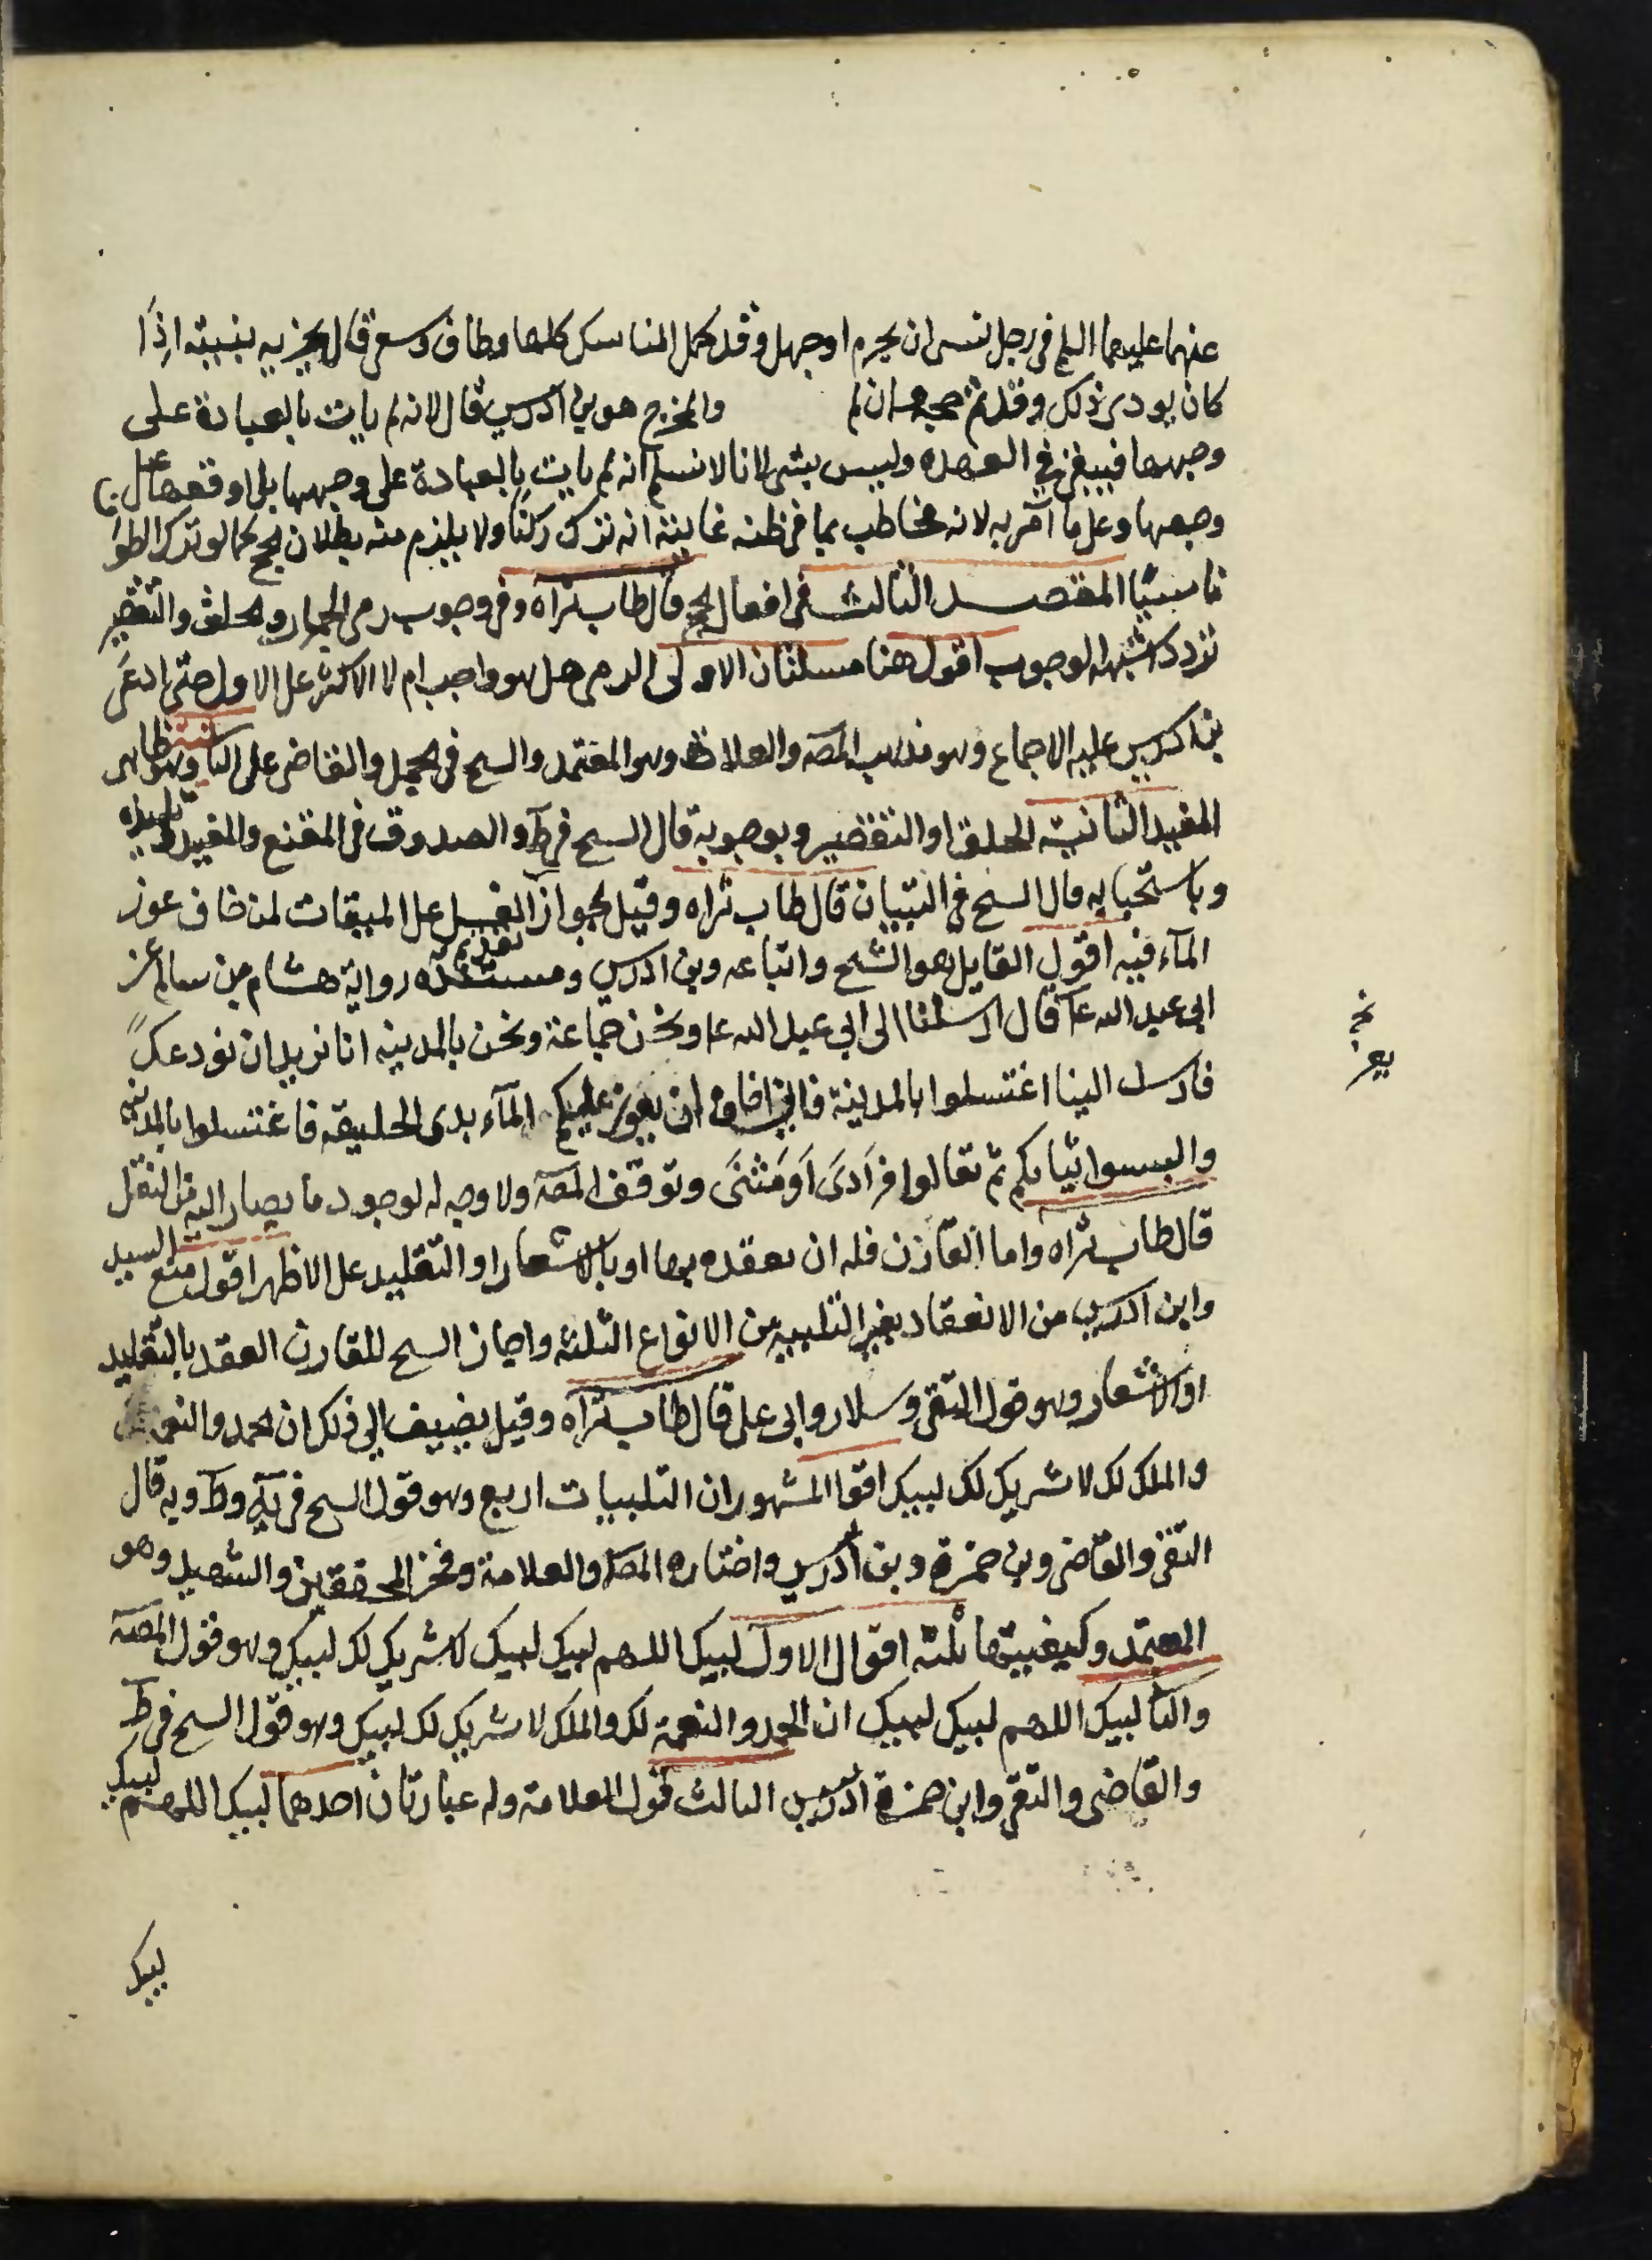 عنهما عليهما السلم فى رجل نسى ان يحرم او جهل وقد كمل المناسك كلها وطاف وسعى قال يجزيه بنيته اذا
كان يودى ذلك وقد تم حجه وان لم والمخرج هو بن ادريس قال لانه لم يات بالعبادة على
وجهها فيبقى فى العهده وليس بشى لانا لا نسلم انه لم يات بالعبادة على وجهها بل اوقعها على
وجهها وعلى ما امر به لانه مخاطب بما فى ظنه غايته انه ترك ركنا ولا يلزم منه بطلان الحج كما لو ترك الطوا
ناسيا المقصد الثالث فى افعال الحج قال طاب ثراه وفى وجوب رمى الجمار والحلق والتقصير
تردد اشبهه الوجوب اقول هنا مسئلتان الاولى الرمى هل هو واجب ام لا الاكثر على الاول حتى ادعى
بن ادريس عليه الاجماع وهو مذهب المصه والعلامة وهو المعتمد والشيخ فى الجمل والقاضى على الثانية وهو ظاهر
المفيد الثانية الحلق او التقصير وبوجوبه قال الشيخ فى ط والصدوق فى المقنع والمفيد وتلميذه
وباستحبابه قال الشيخ فى التبيان قال طاب ثراه وقيل بجواز الغسل على الميقات لمن خاف عوز
المآء فيه اقول القايل هو الشيخ واتباعه وبن ادريس ومستنده رواية هشام بن سالم عن
ابى عبد الله ع قال ارسلنا الى ابى عبد الله ع ونحن جماعة ونحن بالمدينه انا نريد ان نودعك
فارسل الينا اغتسلوا بالمدينة فانى اخاف ان يعوز عليكم المآء بذى الحليفه فاغتسلوا بالمدينه
والبسوا ثيابكم ثم تعالوا فرادى او مثنى وتوقف المصه ولا وجه له لوجود ما يصار اليه من النقل
قال طاب ثراه واما القارن فله ان يعقده بها او بالاشعار او التقليد على الاظهر اقول منع السيد
وابن ادريس من الانعقاد بغير التلبيه من الانواع الثلثه واجاز الشيخ للقارن العقد بالتقليد
او الاشعار وهو قول التقى وسلار وابى على قال طاب ثراه وقيل يضيف الى ذلك ان الحمد والنعمة
والملك لك لا شريك لك لبيك اقول المشهور ان التلبيات اربع وهو قول الشيخ فى يه وط وبه قال
التقى والقاضى وبن حمزة وبن ادريس واختاره المصه والعلامة وفخر المحققين والشهيد وهو
المعتمد وكيفيتها ثلثه اقوال الاول لبيك اللهم لبيك لبيك لا شريك لك لبيك وهو قول المصه
والثا لبيك اللهم لبيك لبيك ان الحمد والنعمة لك والملك لا شريك لك لبيك وهو قول الشيخ فى ط
والقاضى والتقى وابن حمزة ادريس الثالث قول العلامة وله عبارتان احدهما لبيك اللهم لبيك
لبيك